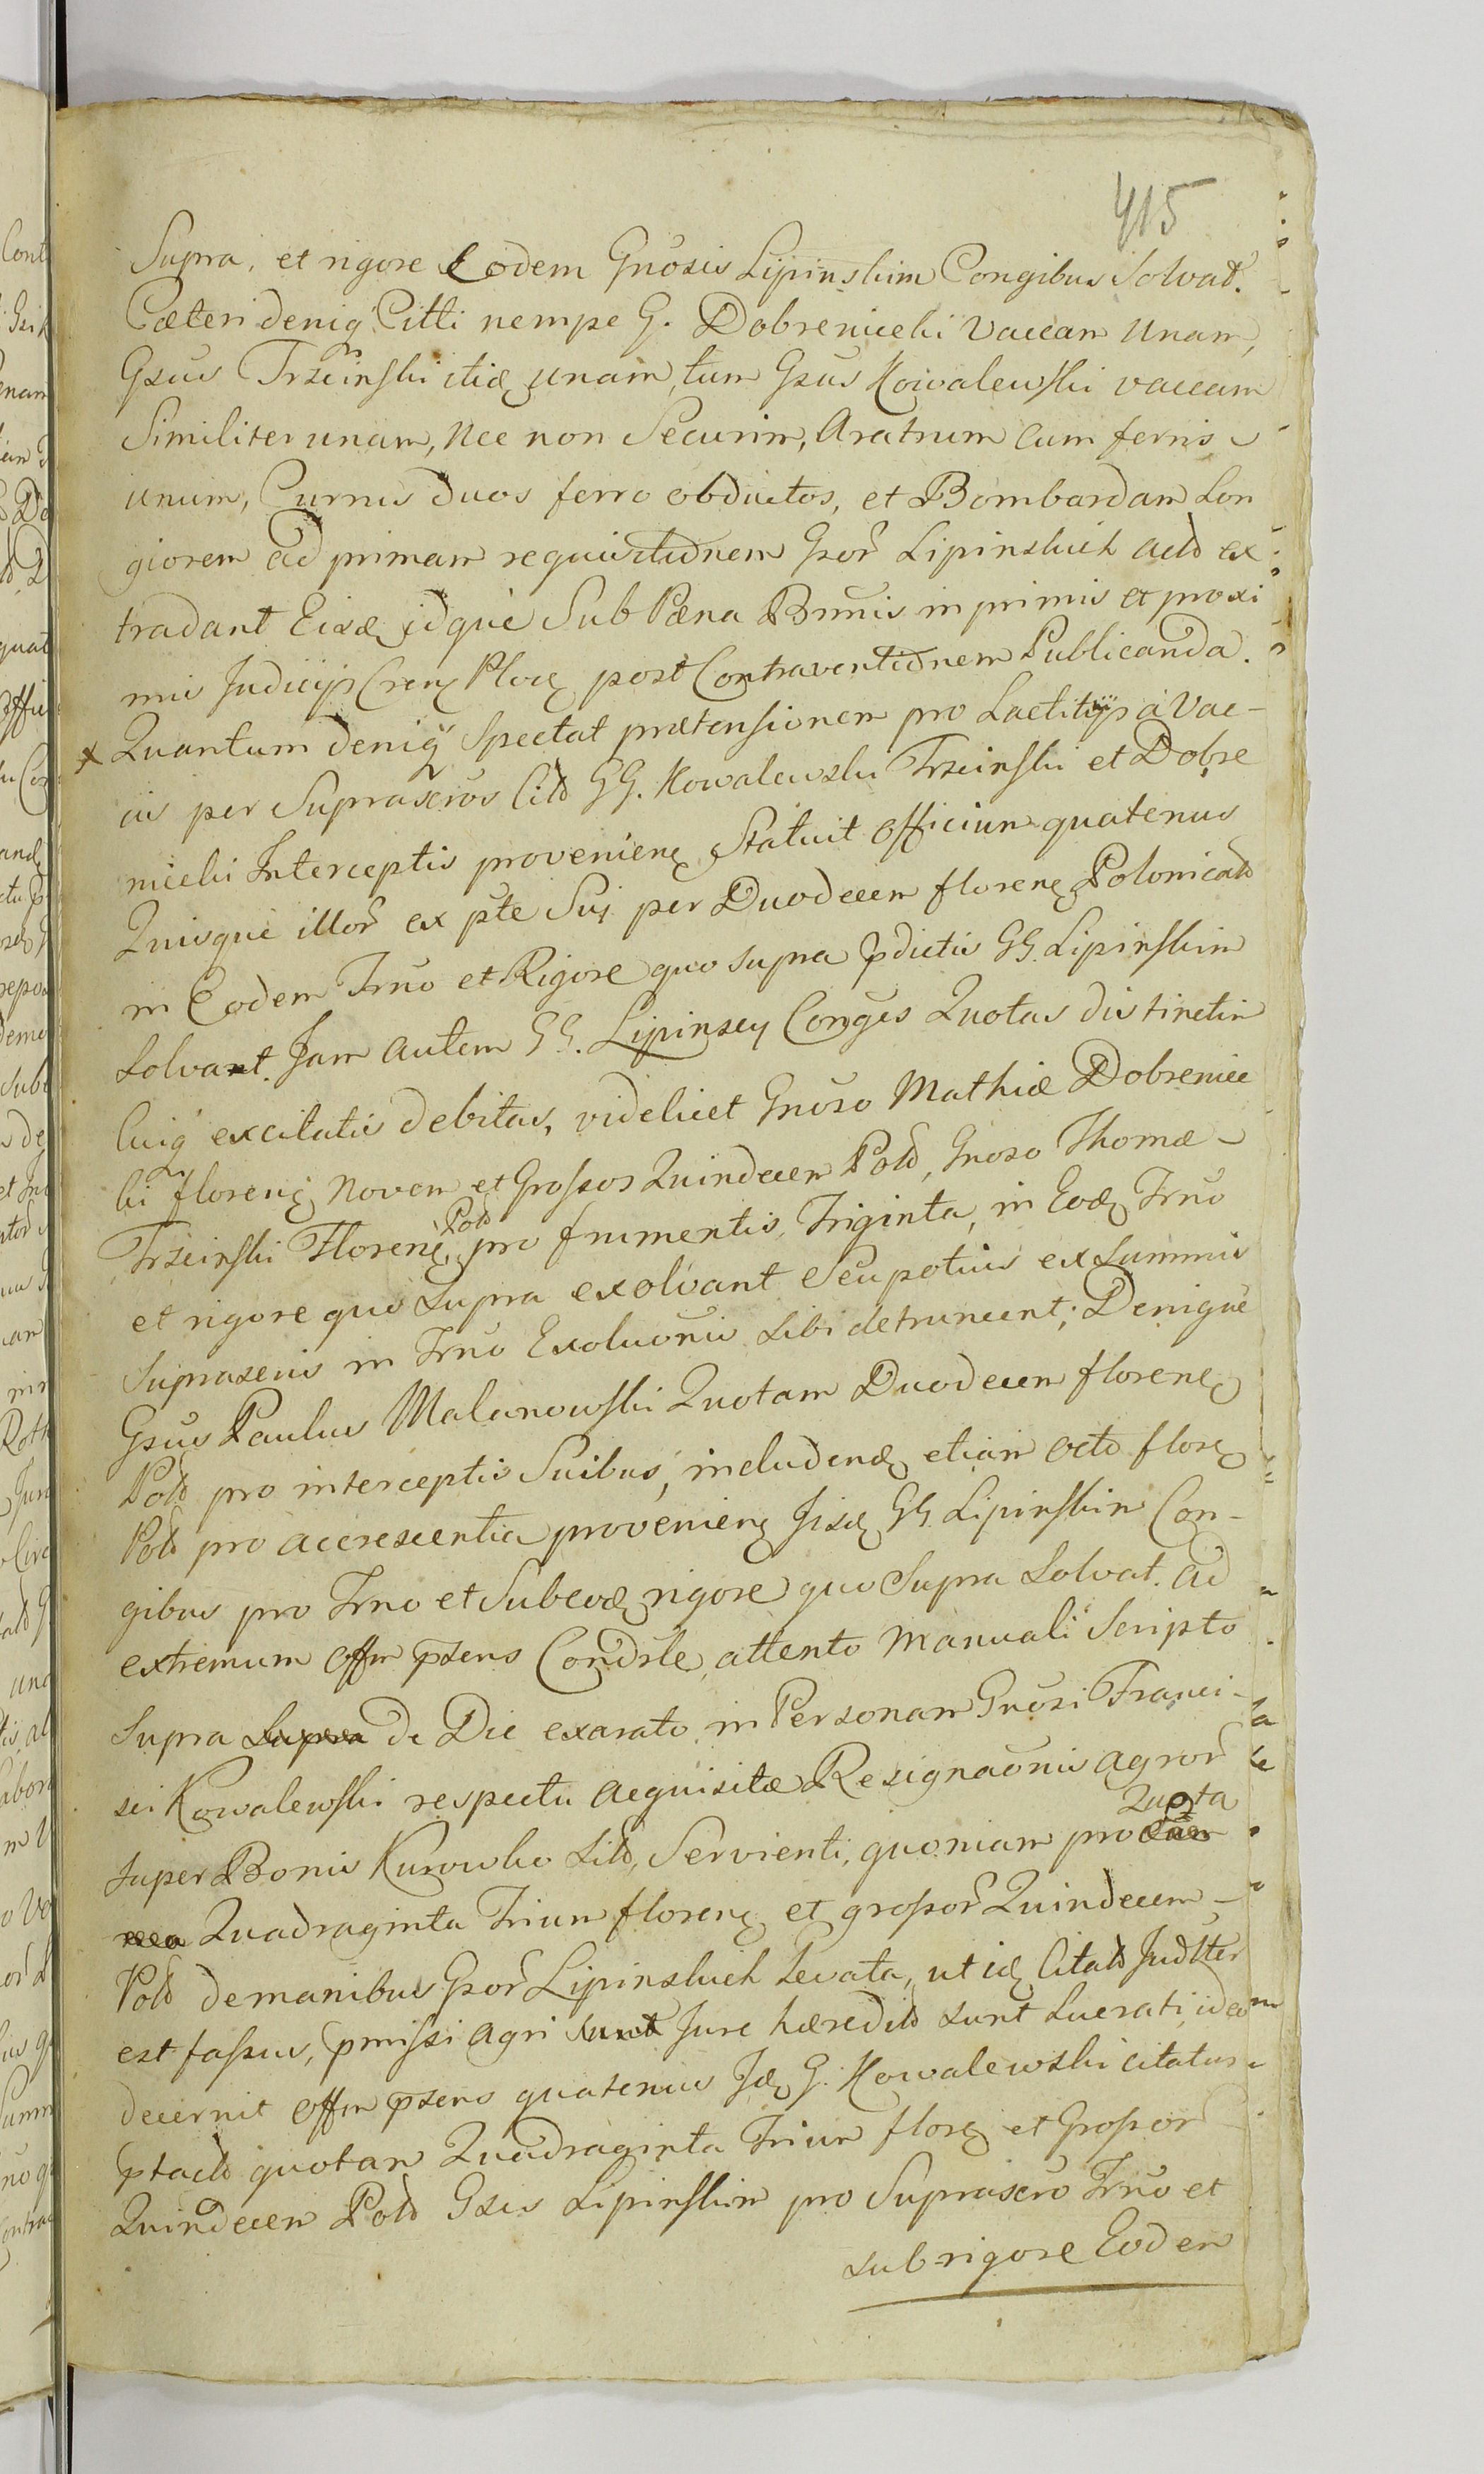 415
Supra, et rigore Eodem Gnosis Lipinskim Congibus Solvat.
Cæteri deniq Citti nempe G. Dobrenicelii Vaccam Unam,
Gsus Trzcinski itidē unam, tum Gsus Kowalewski vaccam
Similiter unam, Nec non Securim, Aratrum cum ferris
unum, Currus duos ferro obductos, et Bombardam Lon
giorem ad primam requisitionem Gsor Lipinskich actō ex
tradant Eisdē idque Sub Pæna Bannis in primis et proxi
mis Judicijs Cren Ploc post Contraventionem Publicanda.
x Quantum deniq Spectat prætensionem pro Lacticinijs à Vac-
cis per Suprascros Citō GG. Kowalewski Trzcinski et Dobre
nicelii Interceptis provenien Statuit Officium quatenus
Quisque illor ex pte Sui per Duodecem floren Polonicales
in Eodem Trno et Rigore quo supra pdictis GG. Lipinskim
Solvant. Jam autem GG. Lipinscy Conges Quotas distinctim
Cuiq excitatis debitas, videlicet Gnoso Mathiæ Dobrenice
lii floren Novem et Grossos Quindecem Polō, Gnoso Thomæ -
Trzcinski Floren Polō pro frumentis, Triginta, in Eodē Trno
et rigore quo Supra exolvant Seu potius ex Summis
Suprascris in Trno Exoluonis Sibi detruncent; Denique
Gsus Paulus Malanowski Quotam Duodecem floren
Polō pro interceptis Suibus, includendē etiam octo flore
Polō pro accrescentia provenien Jisdē GG. Lipinskim Con-
gibus pro Trno et Sub eodē rigore quo Supra Solvat. Ad
extremum Offm psens Condscle, attento Manuali Scripto
Supra de Die exarato in Personam Gnosi Franci-
sci Kowalewski respectu acquisitæ Resignaonis agror
super Bonis Kurowko Sitō, Servienti, quoniam pro Quota
Quadraginta Trium floren et grossor Quindecem -
Polō de manibus Gsor Lipinskich levata, ut idē Citatō Judltter
est fassus, pmissi Agri Jure hæreditō sunt Lucrati, ideo
decernit Offm psens quatenus Jdē G. Kowalewski citatus
ptactō quotam Quadraginta Trium flore et Grossor
Quindecem Polō Gsis Lipinskim pro Suprascro Trno et
sub rigore Eodem